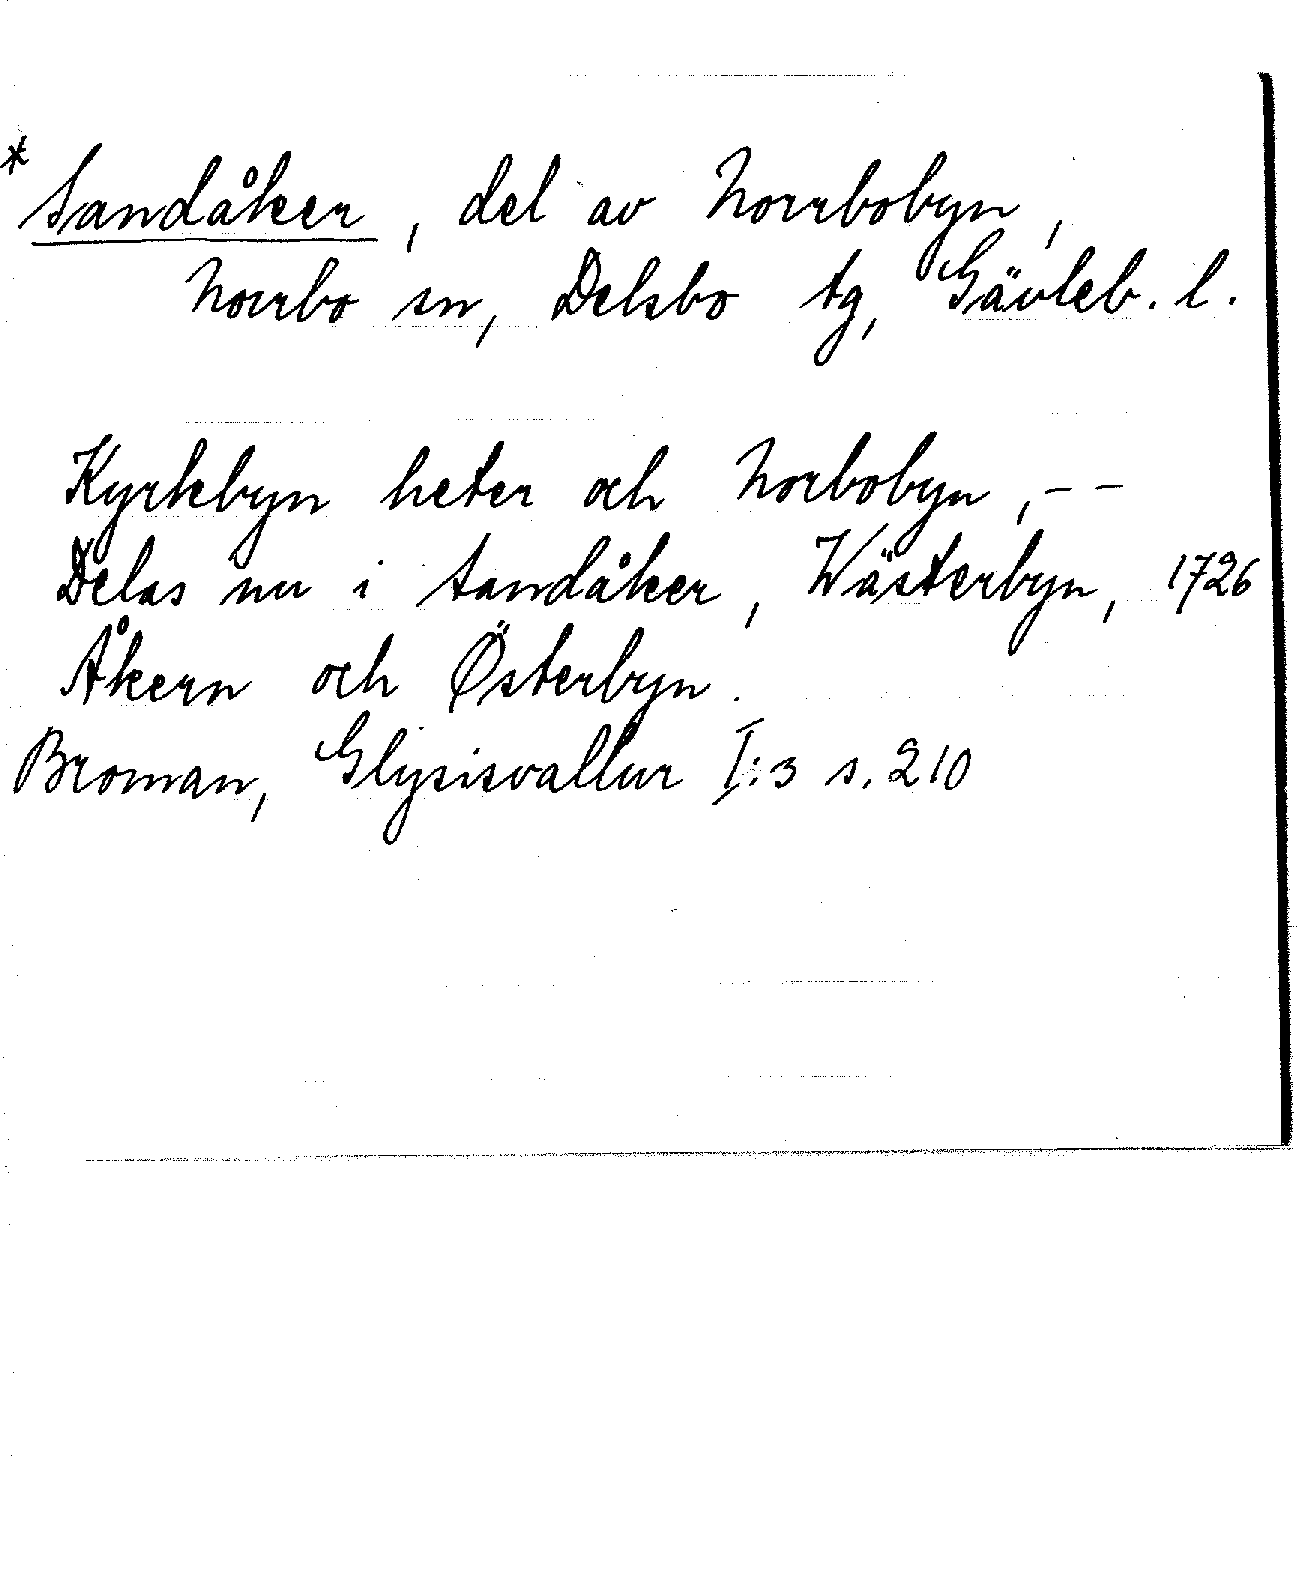 * Sandåker, del av Norrbobyn,
Norrbo sn, Delsbo tg, Gävleb. l.
Kyrkbyn heter och Norbobyn, – –
Delas nu i Sandåker, Wästerbyn, 1726
Åkern och Österbyn.
Broman, Glysisvallur I:3 s. 210